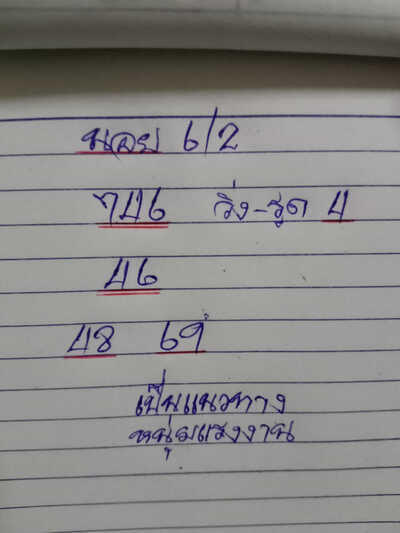 นอย 6/2
746 วิ่ง-รูด 4
46
48 69
เป็นแนวทาง
หนุ่มแรงงาน